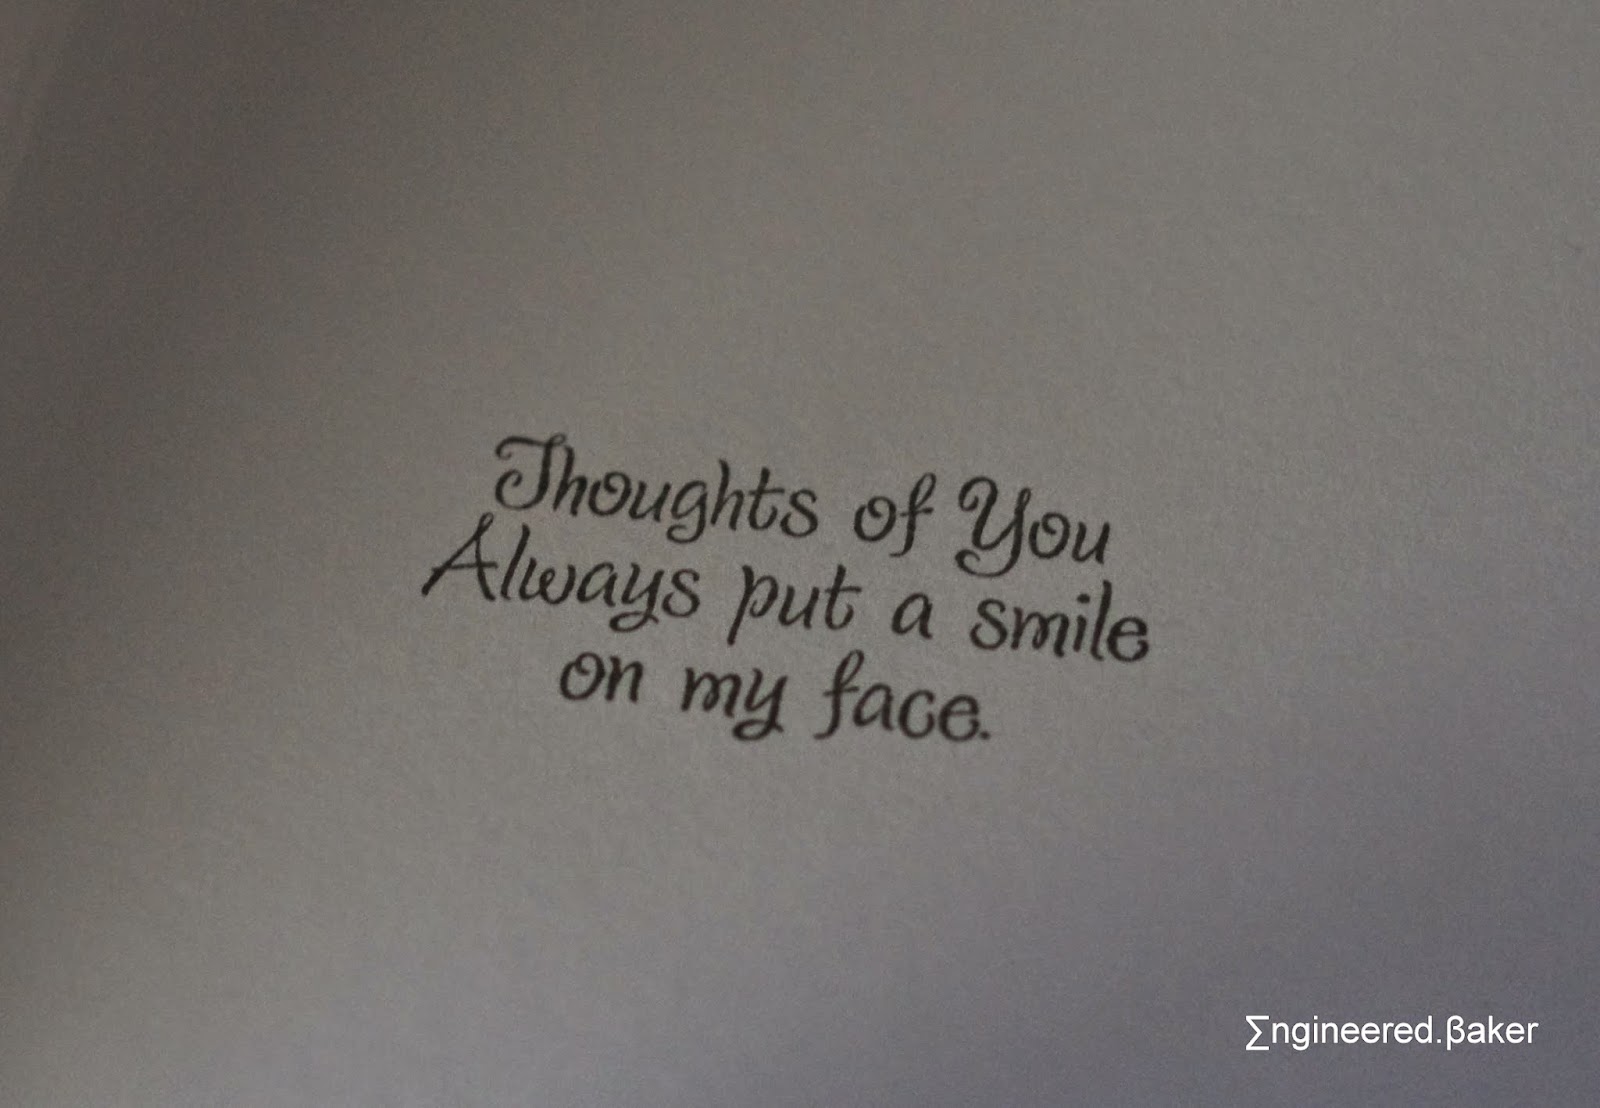 Thoughts of You
Always put a smile
on my face.
∑ngineered.βaker